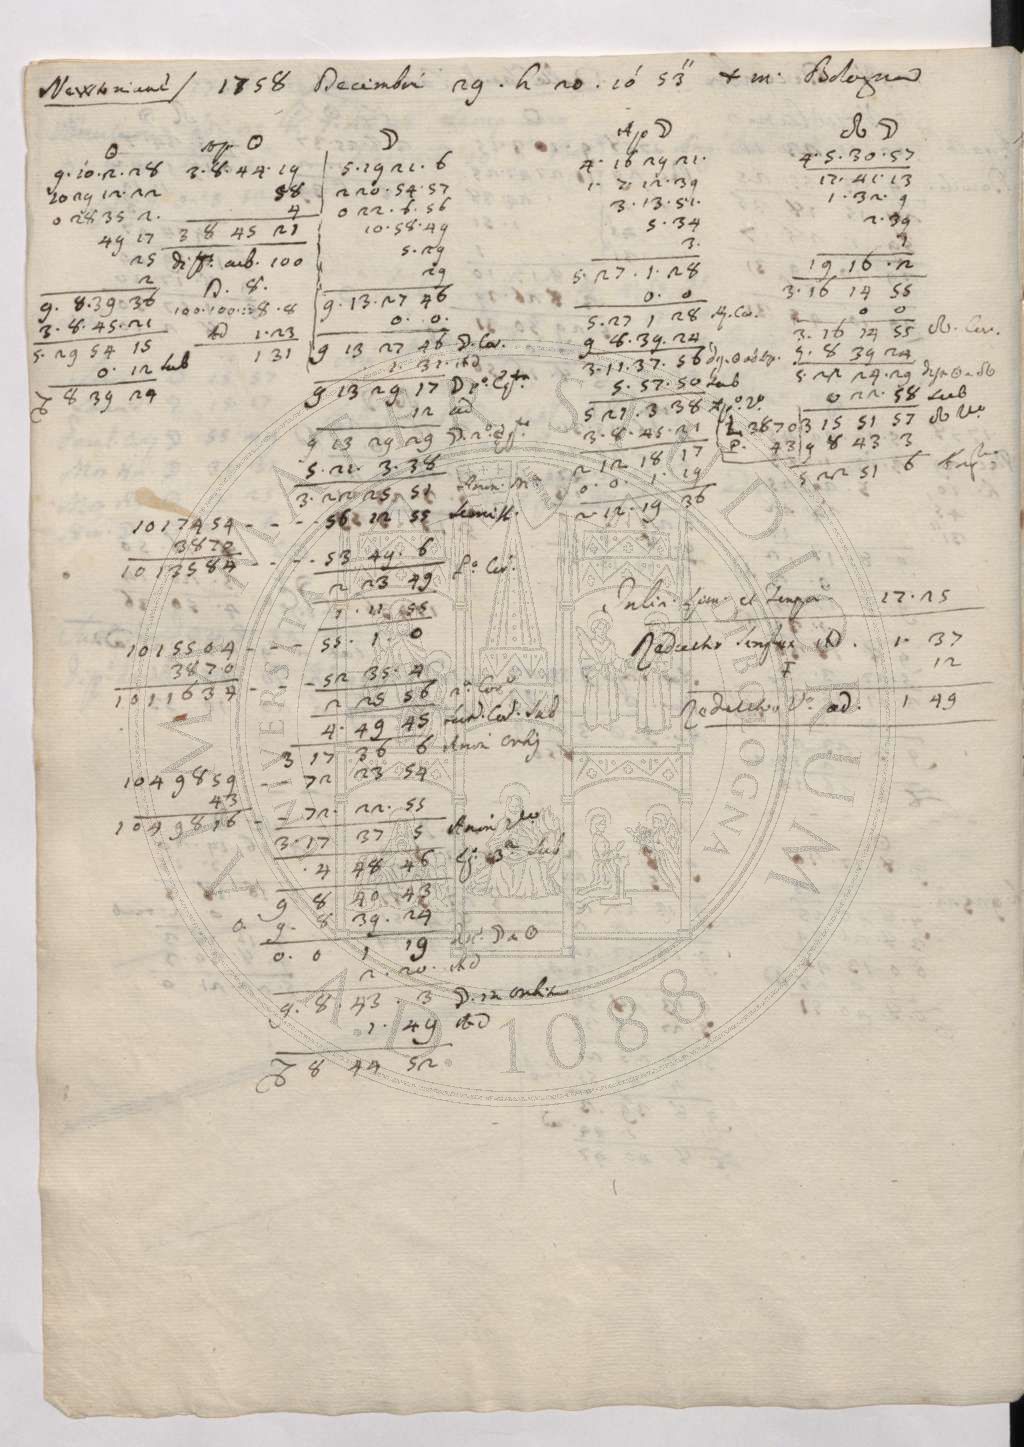 1758 Decembri 29. h 20. 16' 53" t m. Bologna
☉
9.10.2.28
10 29 12.22
0 28 35 2.
49 17
25
2
9.8.39.36
3.8.45.21
5.29 54 15
0.12 sub
♑ 8 39 24
Ap ☉
3.8.44.19
58
4
3 8 45 21
diff. sub. 100
D. 8.
100.100::8.8
Ad 1.23
1 31
☽
5.19 21.6
2 20.54.57
0 22.6.56
10.58.49
5.29
29
9.13.27 46
0.0.
9 13 27 46 ☽. Cor.
1.31. Ad
9 13 29 17
12 ad
9 13 29 29
5.21.3.38
3.22 25 51
Ap ☽
4.16 29 21.
1.7.12.39
3.13.51.
5.34
3.
5.27.1.28
0.0
5.27 1 28 A. Cor.
9 8.39.24
3.11.37.56
5.57.50 sub
5 21.3 38
3.8.45.21
2 12 18 17
0.0.1.19
2.12.19 36
☊ ☽
4.5.30.57
17.41.13
1.32.9
2.39
3
19 16.2
3.16 14 55
0 0
3.16 14 55 ☊. Cor.
9.8 39 24
5 22 24.29
0 22.58 sub
L 3870 3 15 51 57
P. 43 9 8 43 3
5 22 51 6
1017454 - - - 56 12 55
3870
1013584 - - - 53 49.6
2 23 49
1.11 55
1015504 - - - 55.1.0
3870
1011634 - - - 52 35.4
2 25 56
4.49 45
3 17 36 6
1049859 - - 72 23 54
43
1049816 - - 72.22.55
3.17 37 5
.4 48 46
9 8 40 43
☉ 9.8 39.24
0.0 1 19
2.20. Ad
9.8.43.3 ☽. in orbita
1.49 Ad
♑ 8 44 52
17.25
Reductio Ad. 1.37
12
Reductio V. ad. 1 49
ALMA MATER STUDIORUM
UNIVERSITÀ DI BOLOGNA
A.D. 1088